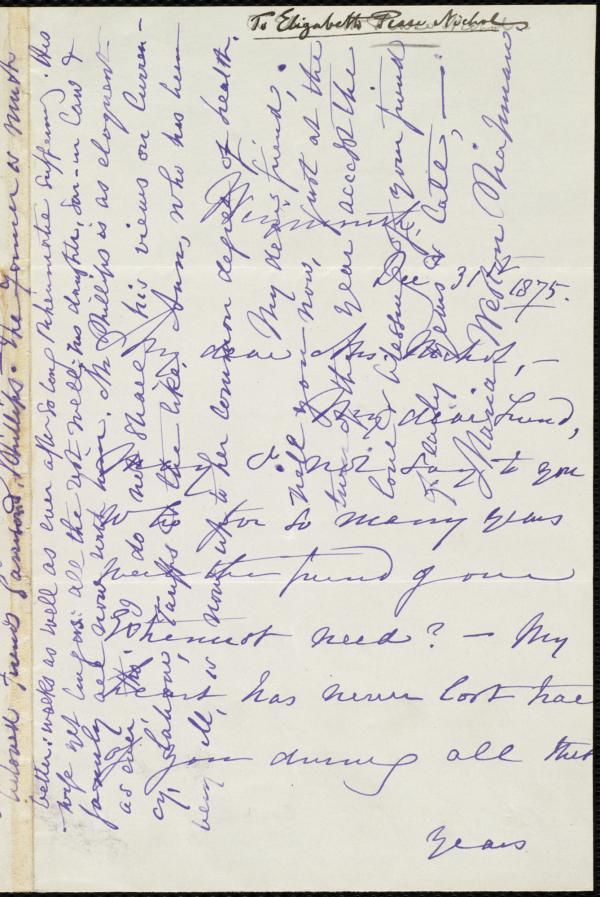 To Elizabeth Pease Nichol
Weymouth,
Dec 31st
1875.
My dear Mrs Nichol, —
My dear friend,
May I not say to you
who for so many years
were the friend of our
utmost need? — My
heart has never lost trace
of you during all these
years
beloved friends Garrison & Phillips. The former is much
better: walks as well as ever after so long rheumatic suffering. His
wife yet lingers: all the rest well; his daughter, son-in-law &
family all now with him. Mr Phillips is as eloquent
as ever, tho' I do not share his views on Curren-
cy, Labour, Tariffs & the like. Ann, who has been
very ill, is now up to her common degree of health.
My dear friend,
Will you now, just at the
turn of the year accept the
love & blessing of your friend
of early years & late, —
Maria Weston Chapman